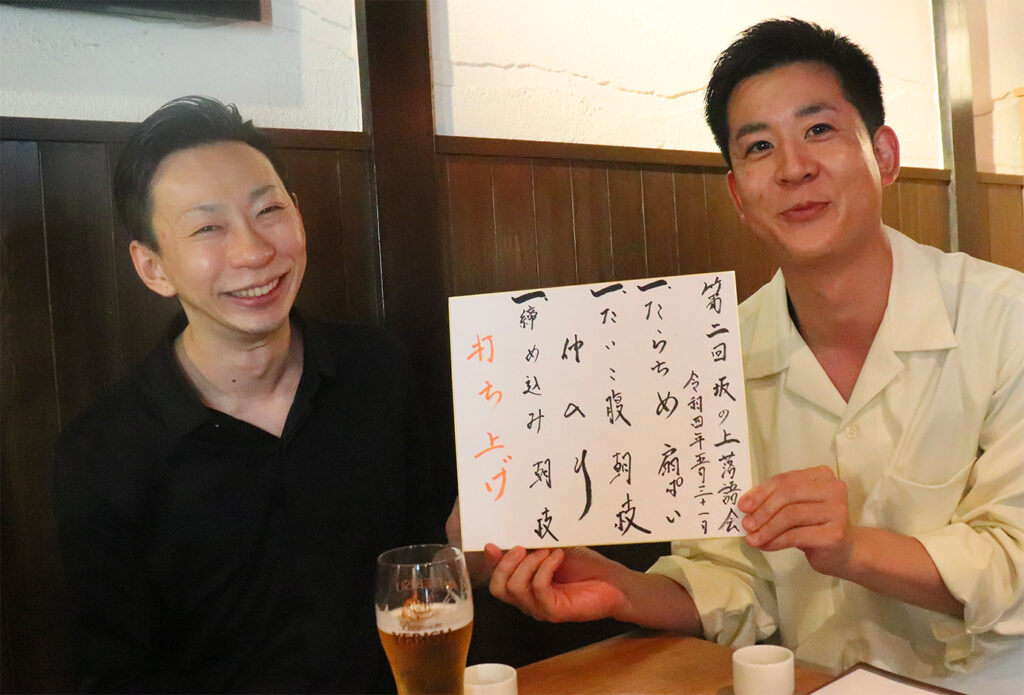 第二回 坂の上落語会
令和四年五月二十一日
一、たらちめ 扇ぽい
一、だいこ腹 朝枝
仲入り
一、締め込み 朝枝
打ち上げ
YEBISU